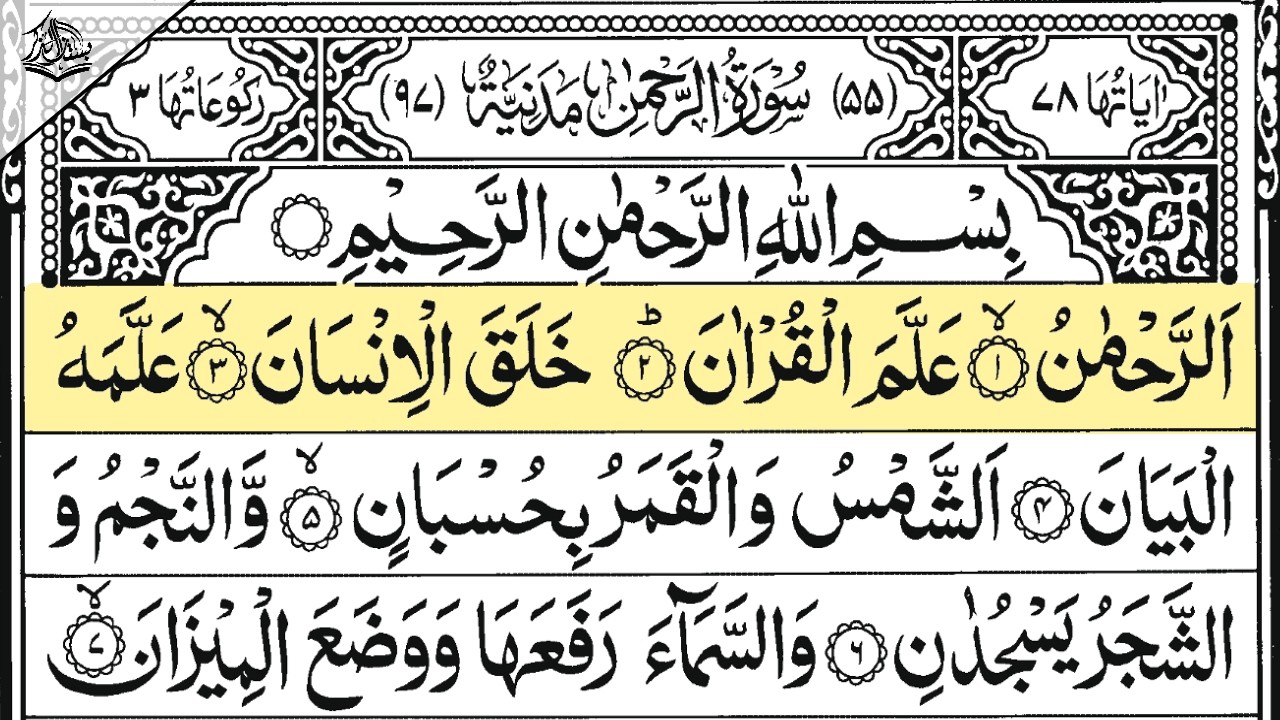 اٰيَاتُهَا ٧٨ (٥٥) سُوْرَةُ الرَّحْمٰنِ مَدَنِيَّةٌ (٩٧) رَكُوْعَاتُهَا ٣
بِسْمِ اللّٰهِ الرَّحْمٰنِ الرَّحِيْمِ
اَلرَّحْمٰنُ ۙ﴿١﴾ عَلَّمَ الْقُرْاٰنَ ؕ﴿٢﴾ خَلَقَ الْاِنْسَانَ ۙ﴿٣﴾ عَلَّمَهُ
الْبَيَانَ ﴿۴﴾ اَلشَّمْسُ وَالْقَمَرُ بِحُسْبَانٍ ۙ﴿۵﴾ وَّالنَّجْمُ وَ
الشَّجَرُ يَسْجُدٰنِ ﴿۶﴾ وَالسَّمَآءَ رَفَعَهَا وَوَضَعَ الْمِيْزَانَ ۙ﴿۷﴾